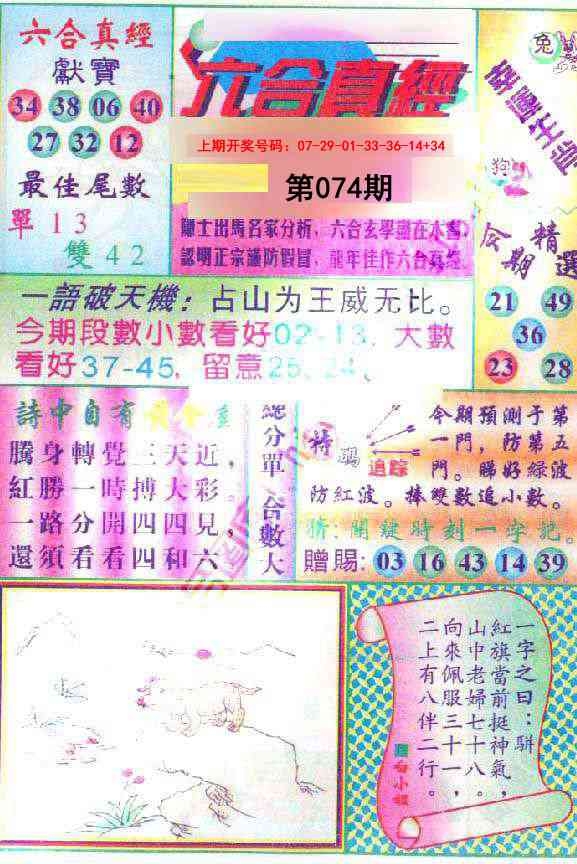 六合真經
獻寶
34 38 06 40
27 32 12
最佳尾數
單 1 3
雙 4 2
六合真經
上期开奖号码: 07-29-01-33-36-14+34
第074期
隱士出馬名家分析,六合玄學盡在本書,
認明正宗謹防假冒,龍年佳作六合真經.
兔
幸運生肖
狗
今期精選
21 49
36
23 28
一語破天機:占山为王威无比。
今期段數小數看好02-13,大數
看好37-45,留意25,24、
詩中自有
騰身轉覺三天近,
紅勝一時搏大彩。
一路分開四四兒,
還須看看四和六
總分單 合數大
特碼
追踪
今期預測于第
一門,防第五
門。睇好綠波
防紅波。捧雙數追小數。
猜:關鍵時刻一字記。
贈賜: 03 16 43 14 39
一字之曰:駢
紅旗當前挺神氣,
山中老婦七十八。
向來佩服三十一,
二上有八伴二行。